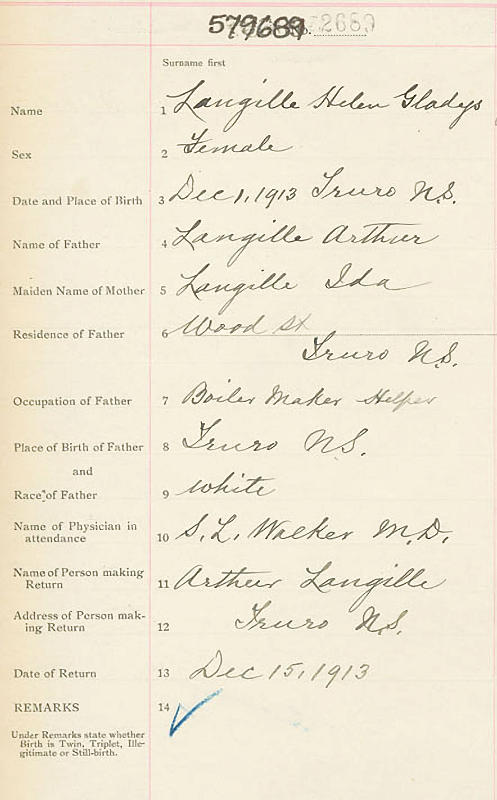 579689 2689
Surname first
Name 1 Langille Helen Gladys
Sex 2 Female
Date and Place of Birth 3 Dec 1, 1913 Truro N.S.
Name of Father 4 Langille Arthur
Maiden Name of Mother 5 Langille Ida
Residence of Father 6 Wood St
Truro N.S.
Occupation of Father 7 Boiler Maker Helper
Place of Birth of Father 8 Truro N.S.
and
Race of Father 9 White
Name of Physician in
attendance 10 S. L. Walker M.D.
Name of Person making
Return 11 Arthur Langille
Address of Person mak-
ing Return 12 Truro N.S.
Date of Return 13 Dec 15, 1913
REMARKS 14
Under Remarks state whether
Birth is Twin, Triplet, Ille-
gitimate or Still-birth.